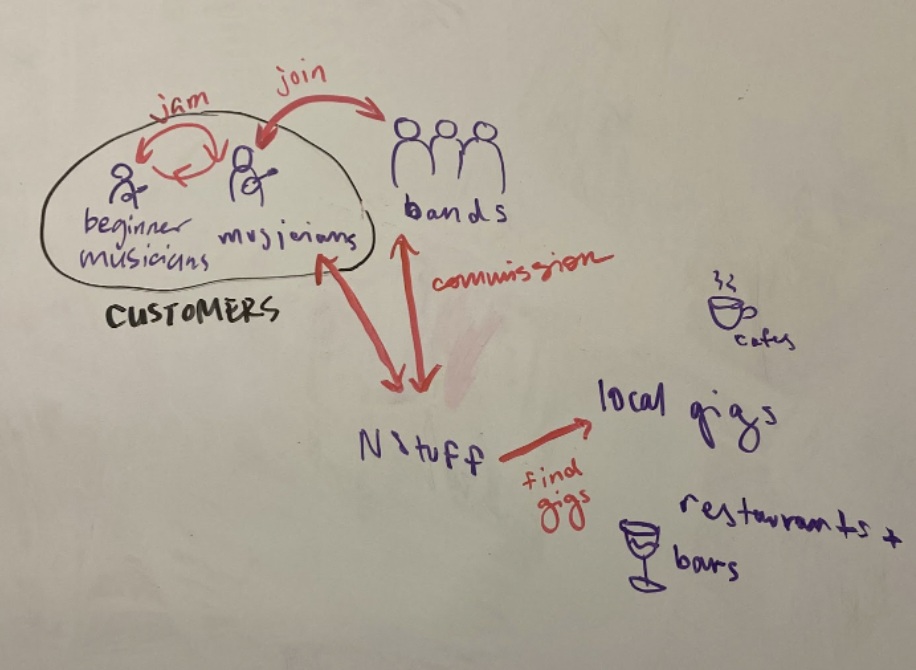 join
jam
bands
beginner
musicians
musicians
CUSTOMERS
commission
cafes
local gigs
N Stuff
find
gigs
restaurants +
bars